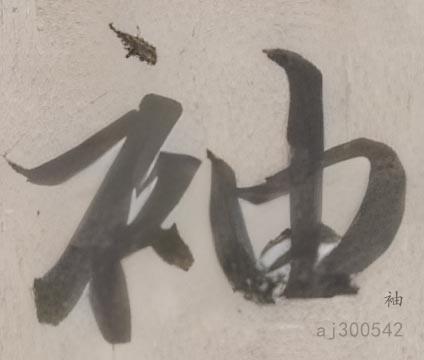 袖
袖
aj300542